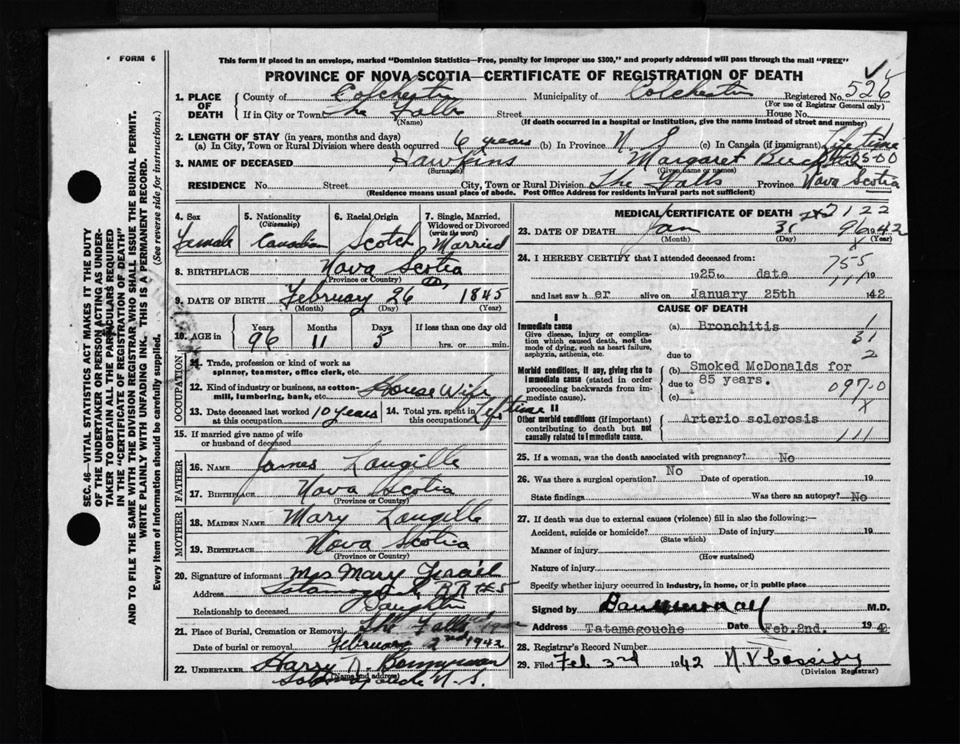 FORM 6
This form if placed in an envelope, marked "Dominion Statistics—Free, penalty for improper use $300," and properly addressed will pass through the mail "FREE"
PROVINCE OF NOVA SCOTIA—CERTIFICATE OF REGISTRATION OF DEATH
1. PLACE OF DEATH { County of Colchester Municipality of Colchester Registered No. 526
(For use of Registrar General only)
If in City or Town The Falls Street House No.
(Name) (If death occurred in a hospital or institution, give the name instead of street and number)
2. LENGTH OF STAY (in years, months and days)
(a) In City, Town or Rural Division where death occurred 6 years (b) In Province N. S (c) In Canada (if immigrant) Life time
3. NAME OF DECEASED Hawkins Margaret 05-00
(Surname) (Given name or names)
RESIDENCE No. Street City, Town or Rural Division The Falls Province Nova Scotia
(Residence means usual place of abode. Post Office Address for residents in rural parts not sufficient)
4. Sex Female
5. Nationality (Citizenship) Canadian
6. Racial Origin Scotch
7. Single, Married, Widowed or Divorced (write the word) Married
8. BIRTHPLACE Nova Scotia
(Province or Country)
9. DATE OF BIRTH February 26 1845
(Month) (Day) (Year)
10. AGE in { Years 96 Months 11 Days 5 If less than one day old
hrs. or min.
OCCUPATION
11. Trade, profession or kind of work as spinner, teamster, office clerk, etc.
12. Kind of industry or business, as cotton-mill, lumbering, bank, etc. House Wife
13. Date deceased last worked at this occupation 10 years
14. Total yrs. spent in this occupation Life time
15. If married give name of wife or husband of deceased
FATHER
16. NAME James Langille
17. BIRTHPLACE Nova Scotia
(Province or Country)
MOTHER
18. MAIDEN NAME Mary Langille
19. BIRTHPLACE Nova Scotia
(Province or Country)
20. Signature of informant Mrs Mary
Address RR #5
Relationship to deceased Daughter
21. Place of Burial, Cremation or Removal The Falls
Date of burial or removal February 2nd 1942
22. UNDERTAKER Harry
N. S.
MEDICAL CERTIFICATE OF DEATH 2122
23. DATE OF DEATH Jan 31 1942
(Month) (Day) (Year)
24. I HEREBY CERTIFY that I attended deceased from: 755
1925 to date 19
and last saw h er alive on January 25th 1942
CAUSE OF DEATH
I
Immediate cause
Give disease, injury or complication which caused death, not the mode of dying, such as heart failure, asphyxia, asthenia, etc.
(a) Bronchitis
due to
Morbid conditions, if any, giving rise to immediate cause (stated in order proceeding backwards from immediate).
(b) Smoked McDonalds for
due to 85 years.
(c) 097-0
II
Other morbid conditions (if important) contributing to death but not causally related to immediate cause.
Arterio sclerosis
111
25. If a woman, was the death associated with pregnancy? No
26. Was there a surgical operation? No Date of operation 19
State findings Was there an autopsy? No
27. If death was due to external causes (violence) fill in also the following:—
Accident, suicide or homicide? Date of injury 19
(State which)
Manner of injury
(How sustained)
Nature of injury
Specify whether injury occurred in industry, in home, or in public place
Signed by M.D.
Address Tatamagouche Date Feb.2nd. 1942
28. Registrar's Record Number
29. Filed Feb 3rd 1942 N V Cassidy
(Division Registrar)
SEC. 46—VITAL STATISTICS ACT MAKES IT THE DUTY
OF THE UNDERTAKER OR PERSON ACTING AS UNDER-
TAKER TO OBTAIN ALL THE PARTICULARS REQUIRED
IN THE "CERTIFICATE OF REGISTRATION OF DEATH"
AND TO FILE THE SAME WITH THE DIVISION REGISTRAR WHO SHALL ISSUE THE BURIAL PERMIT.
WRITE PLAINLY WITH UNFADING INK. THIS IS A PERMANENT RECORD.
Every item of information should be carefully supplied. (See reverse side for instructions.)